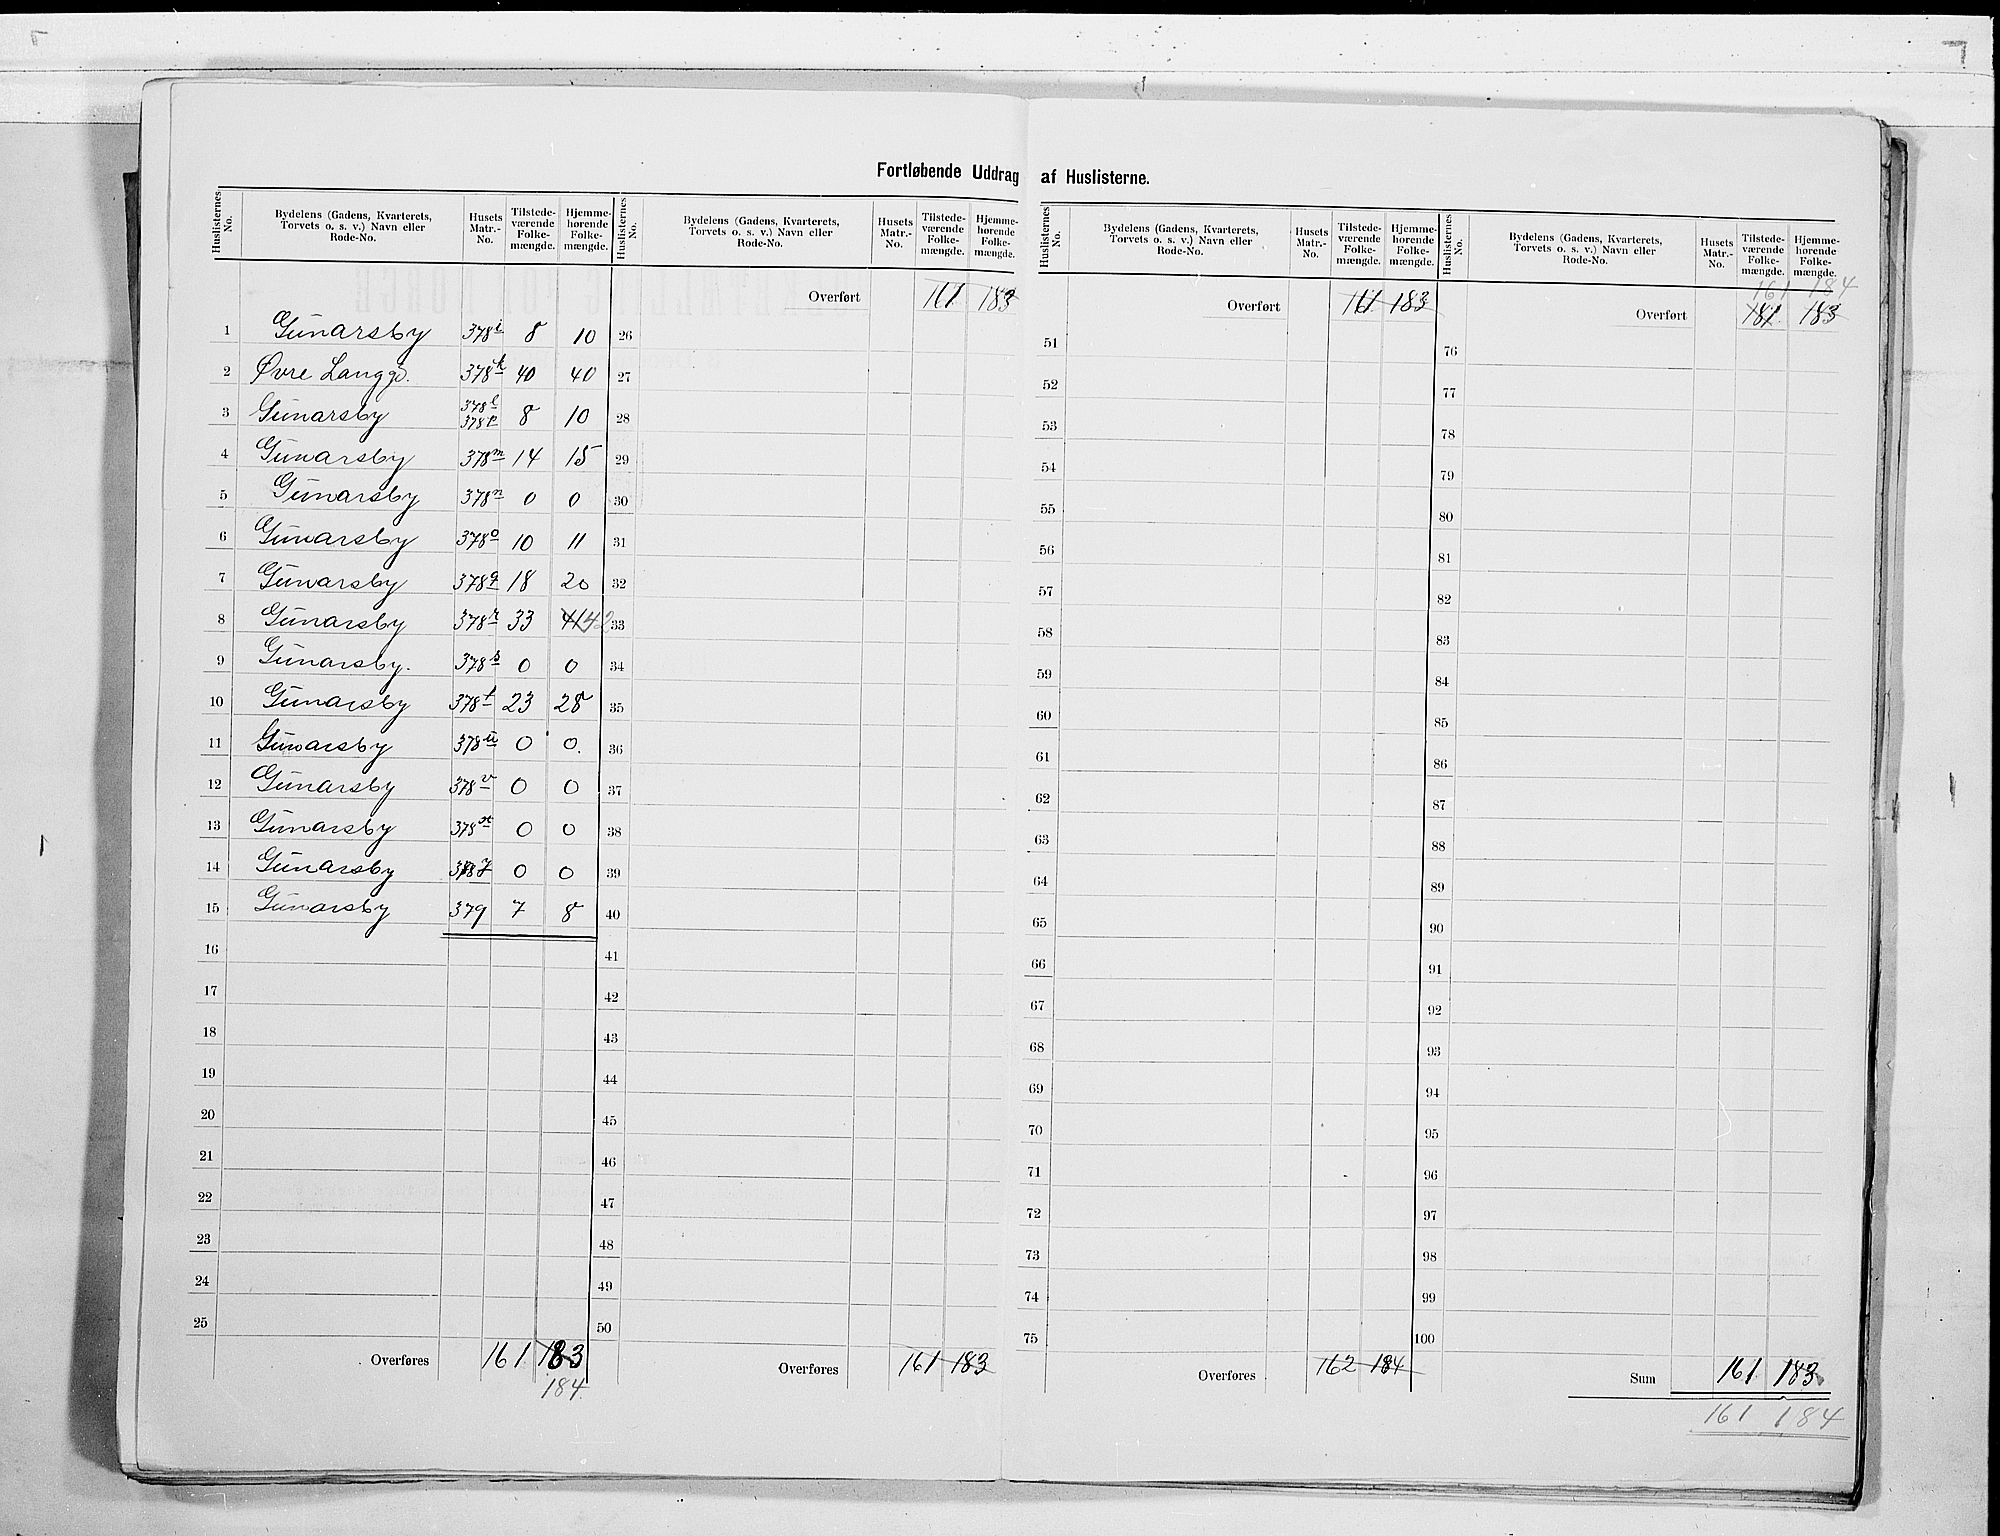 Fortløbende Uddrag af Huslisterne.
Huslisternes No. | Bydelens (Gadens, Kvarterets, Torvets o. s. v.) Navn eller Rode-No. | Husets Matr.-No. | Tilstedeværende Folkemængde. | Hjemmehørende Folkemængde.
1 Gunarsby 378i 8 10
2 Øvre Langgd. 378k 40 40
3 Gunarsby 378l 378p 8 10
4 Gunarsby 378m 14 15
5 Gunarsby 378n 0 0
6 Gunarsby 378o 10 11
7 Gunarsby 378q 18 20
8 Gunarsby 378r 33 41 42
9 Gunarsby. 378s 0 0
10 Gunarsby 378t 23 28
11 Gunarsby 378u 0 0.
12 Gunarsby 378v 0 0
13 Gunarsby 378x 0 0
14 Gunarsby 378y 0 0
15 Gunarsby 379 7 8
16
17
18
19
20
21
22
23
24
25
Overføres 161 183
184
Huslisternes No. | Bydelens (Gadens, Kvarterets, Torvets o. s. v.) Navn eller Rode-No. | Husets Matr.-No. | Tilstedeværende Folkemængde. | Hjemmehørende Folkemængde.
Overført 161 183
26
27
28
29
30
31
32
33
34
35
36
37
38
39
40
41
42
43
44
45
46
47
48
49
50
Overføres 161 183
Huslisternes No. | Bydelens (Gadens, Kvarterets, Torvets o. s. v.) Navn eller Rode-No. | Husets Matr.-No. | Tilstedeværende Folkemængde. | Hjemmehørende Folkemængde.
Overført 161 183
51
52
53
54
55
56
57
58
59
60
61
62
63
64
65
66
67
68
69
70
71
72
73
74
75
Overføres 162 184
Huslisternes No. | Bydelens (Gadens, Kvarterets, Torvets o. s. v.) Navn eller Rode-No. | Husets Matr.-No. | Tilstedeværende Folkemængde. | Hjemmehørende Folkemængde.
161 184
Overført 181 183
76
77
78
79
80
81
82
83
84
85
86
87
88
89
90
91
92
93
94
95
96
97
98
99
100
Sum 161 183
161 184